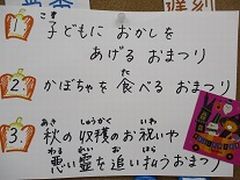 1. 子どもに おかしを
あげる おまつり
2. かぼちゃを 食べる おまつり
3. 秋の 収穫の お祝いや
悪い霊を 追い払う おまつり